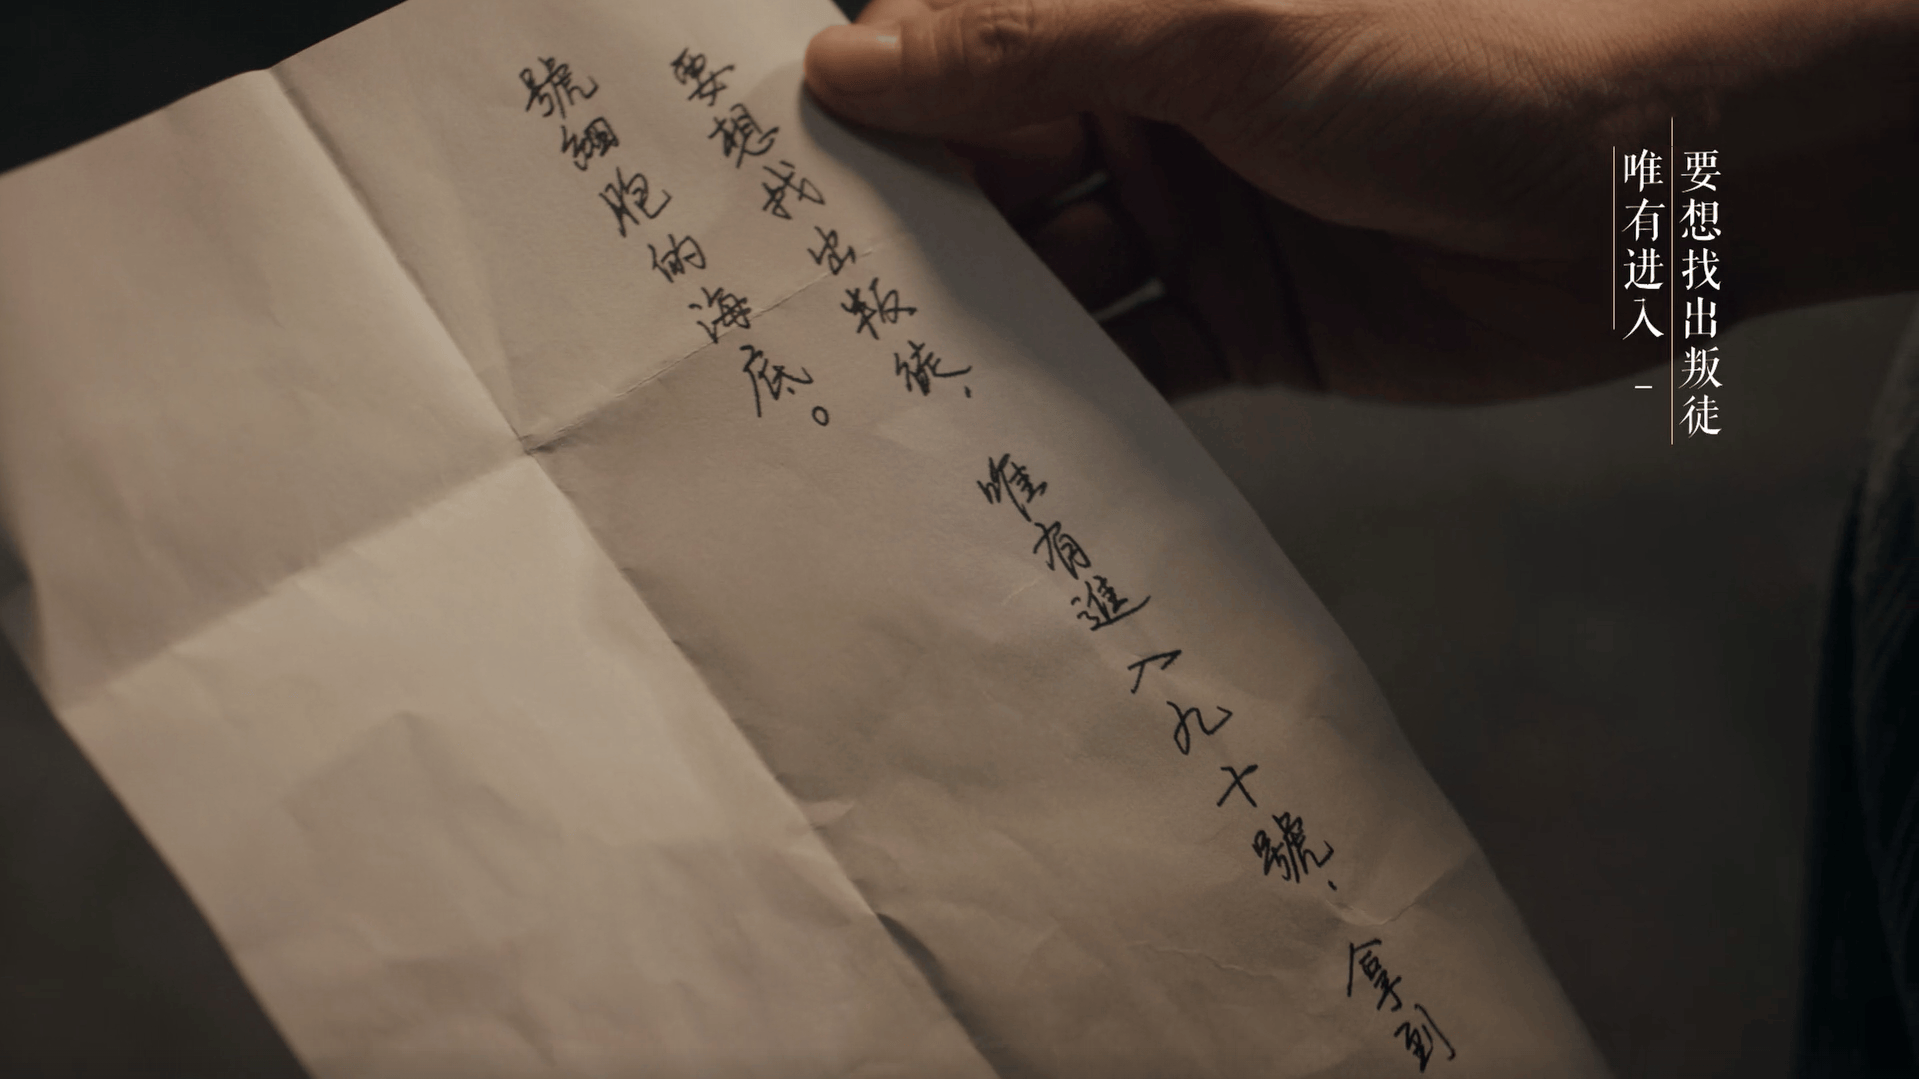 要想找出叛徒，唯有進入九十號，拿到
號細胞的海底。
要想找出叛徒
唯有进入